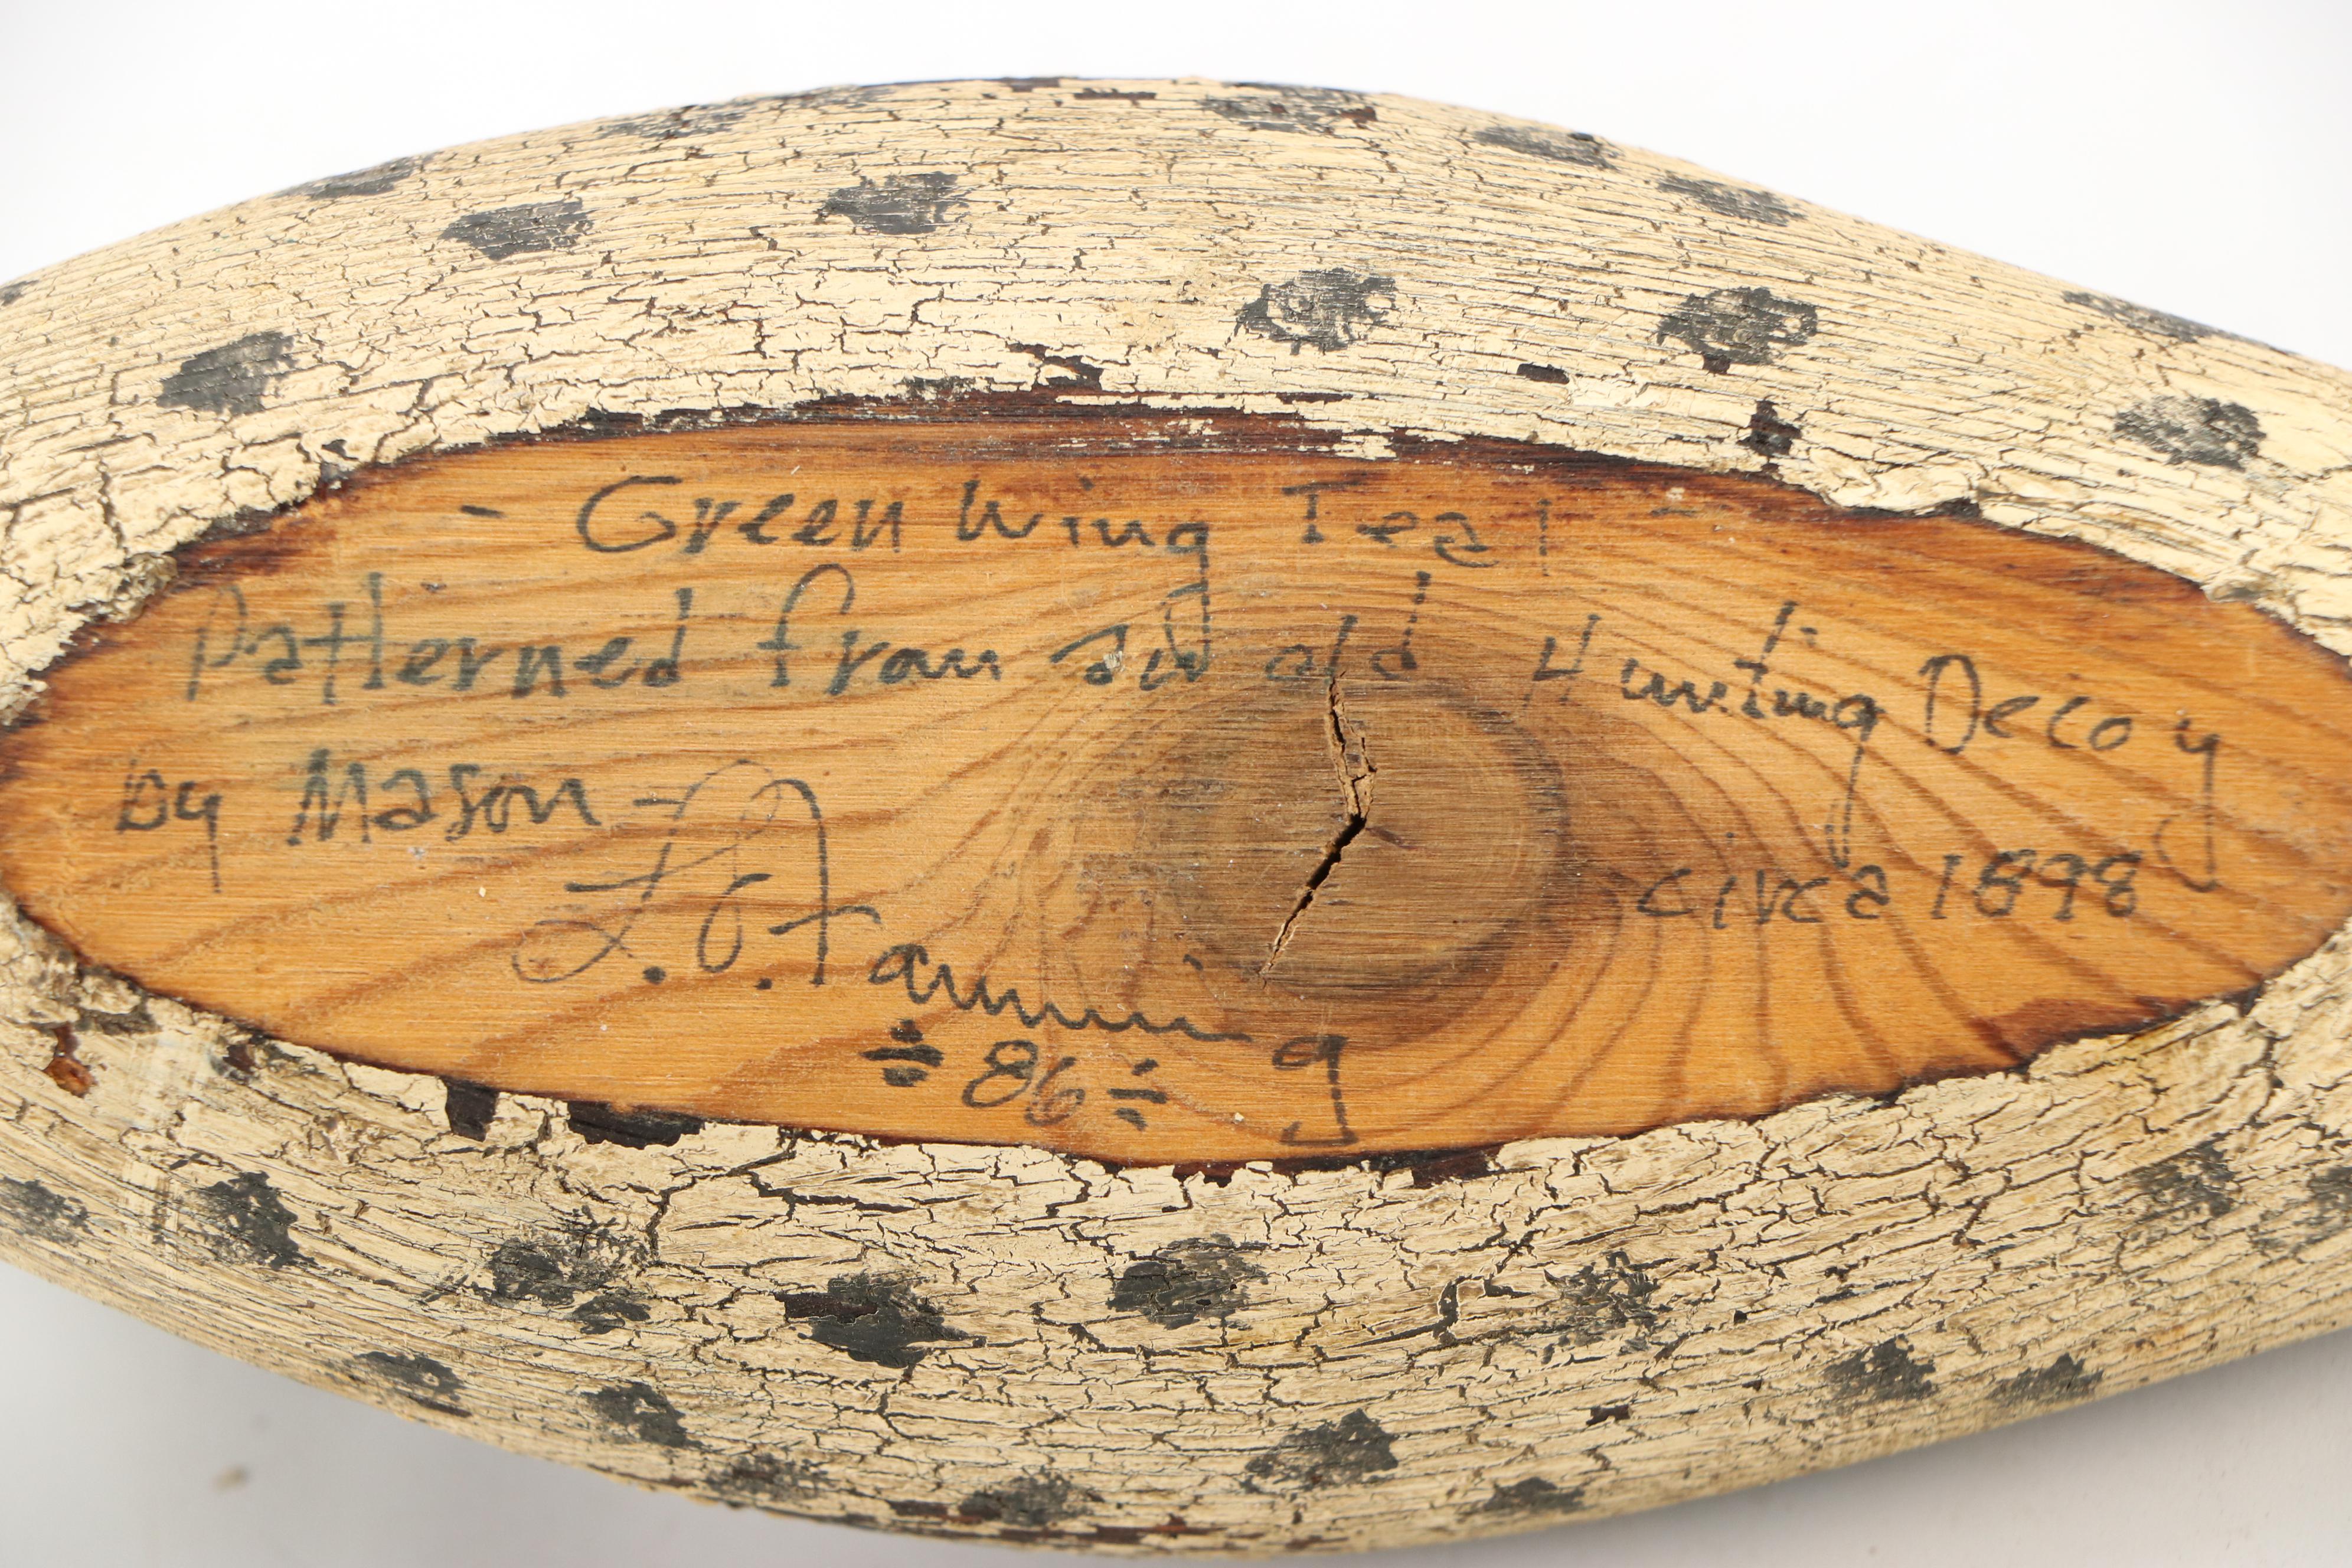 - Green Wing Teal -
Patterned from and old Hunting Decoy
by Mason - circa 1898
L.J. Fanning
÷ 86 ÷